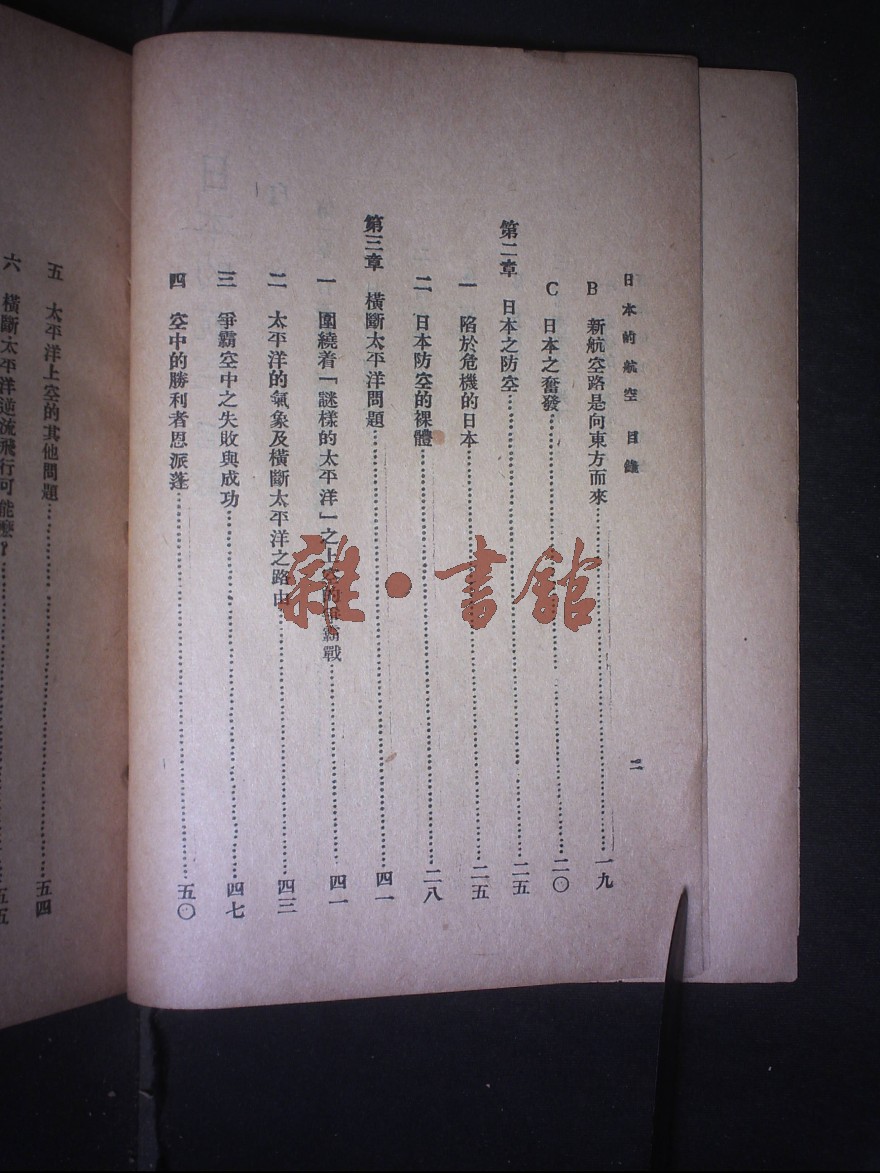 日本的航空 目錄
二
B 新航空路是向東方而來……一九
C 日本之奮發……二〇
第二章 日本之防空……二五
一 陷於危機的日本……二五
二 日本防空的裸體……二八
第三章 橫斷太平洋問題……四一
一 圍繞着「謎樣的太平洋」之上空的爭霸戰……四一
二 太平洋的氣象及橫斷太平洋之路由……四三
三 爭霸空中之失敗與成功……四七
四 空中的勝利者恩派蓬……五〇
五 太平洋上空的其他問題……五四
六 橫斷太平洋逆流飛行可能麼?……五五
雜·書館